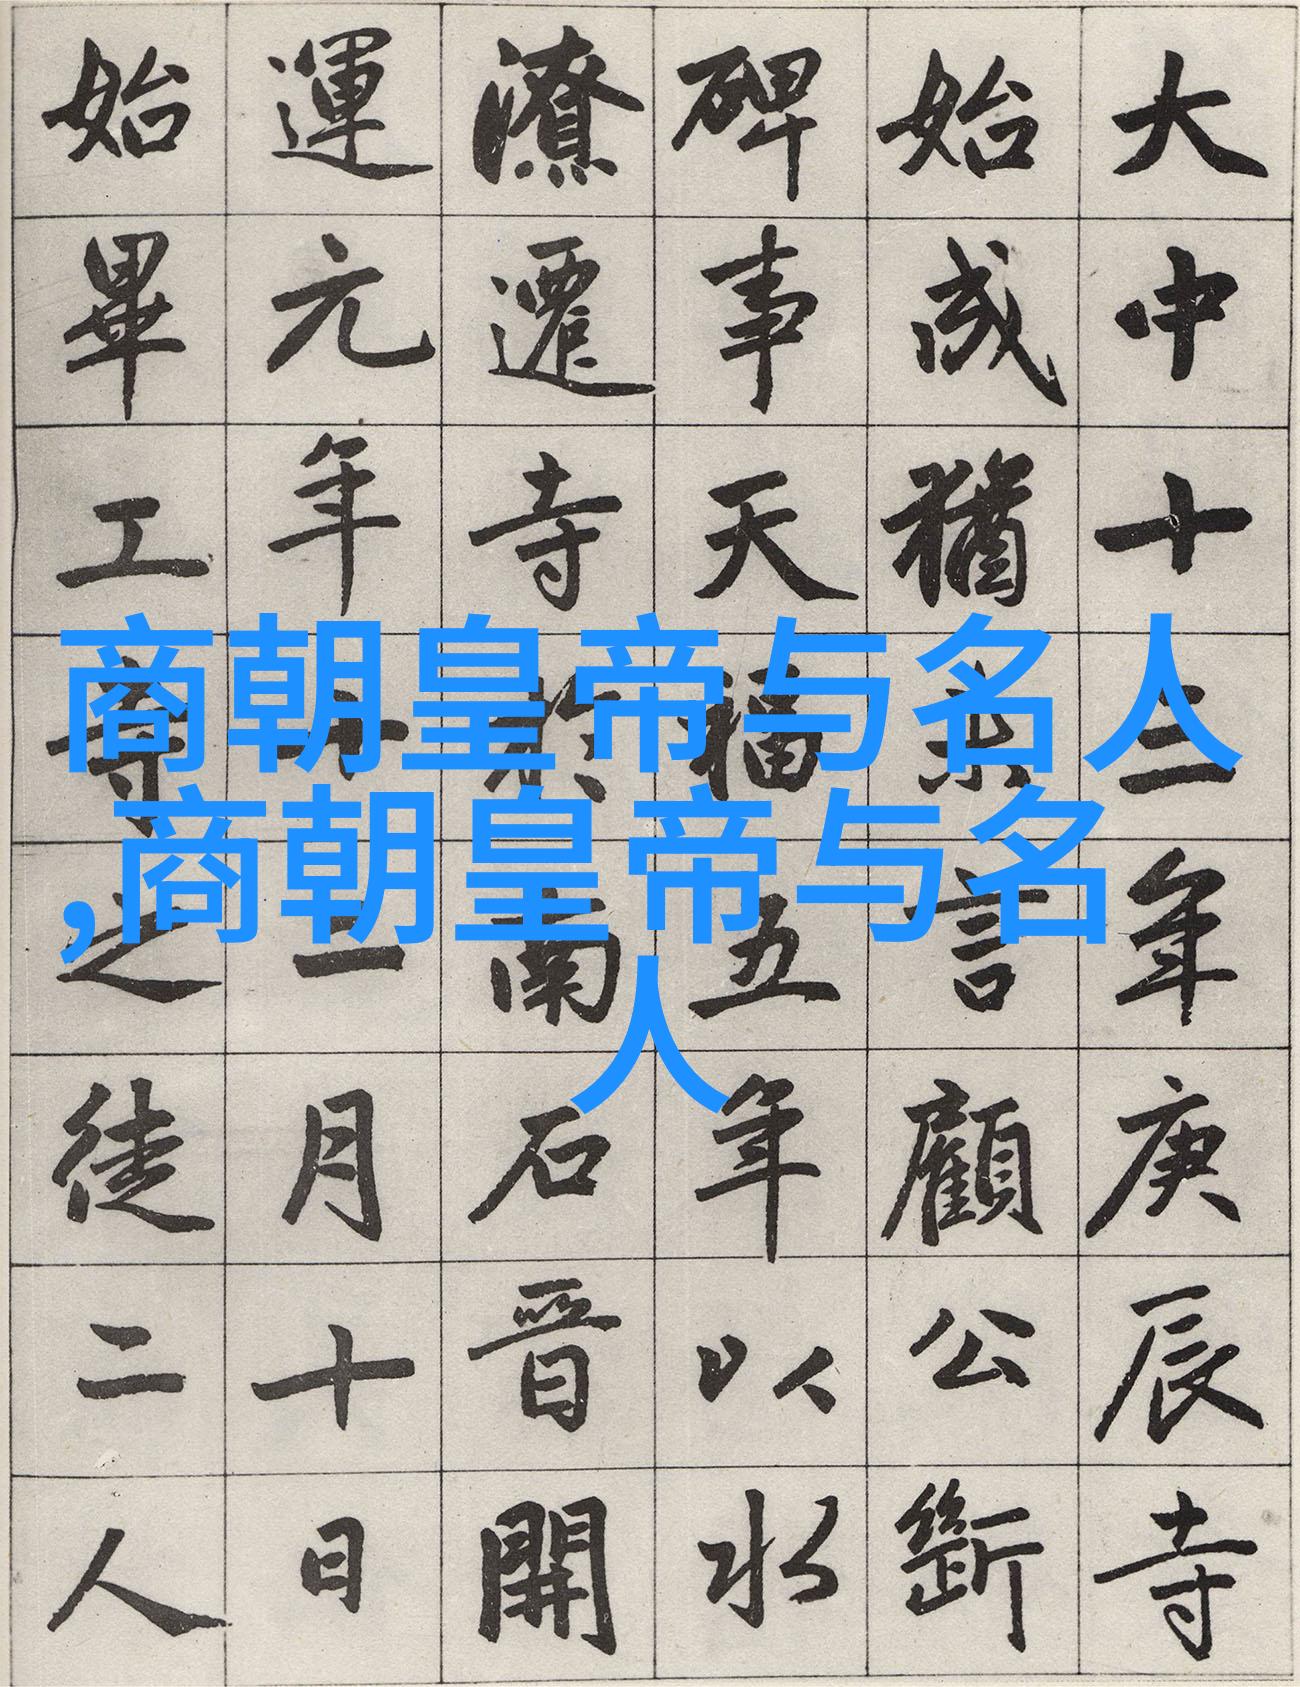 商朝皇帝与名人
,商朝皇帝与名
人
大中十三年庚辰寺
始成猶未言顧公
碑事天福五年以水
潦遷寺於南石晉開
運元年十二月十日
始畢工之徒二人